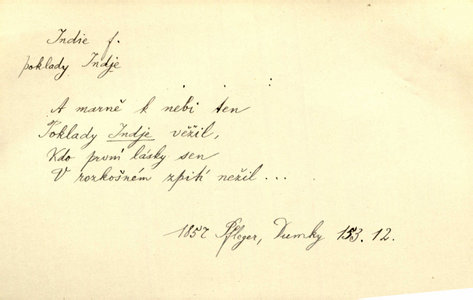 Indie f.
poklady Indje
A marně k nebi ten
Poklady Indje věžil,
Kdo první lásky sen
V rozkošném zpití nežil...
1857 Pfleger, Dumky 153. 12.